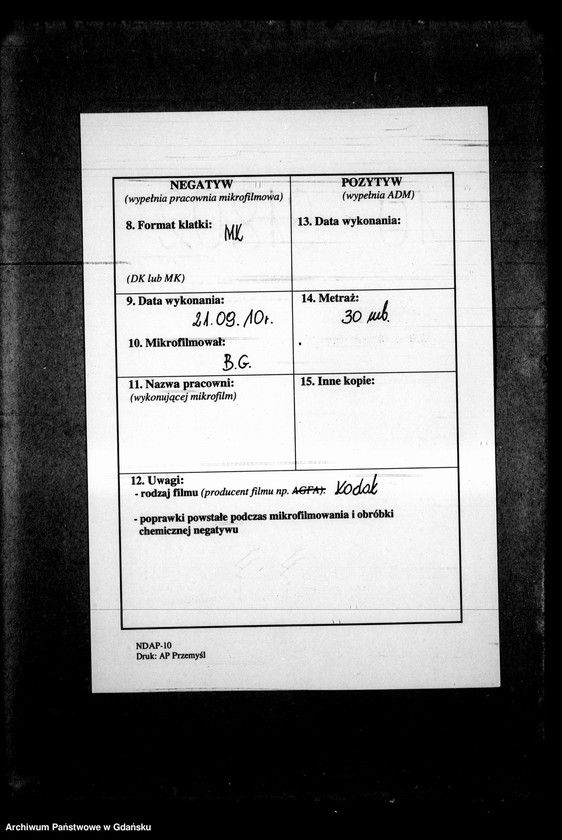 NEGATYW
(wypełnia pracownia mikrofilmowa)
POZYTYW
(wypełnia ADM)
8. Format klatki: MK
(DK lub MK)
13. Data wykonania:
9. Data wykonania:
21.09.10r.
10. Mikrofilmował:
B.G.
14. Metraż:
30 mb.
11. Nazwa pracowni:
(wykonującej mikrofilm)
15. Inne kopie:
12. Uwagi:
- rodzaj filmu (producent filmu np. AGFA): Kodak
- poprawki powstałe podczas mikrofilmowania i obróbki
chemicznej negatywu
NDAP-10
Druk: AP Przemyśl
Archiwum Państwowe w Gdańsku